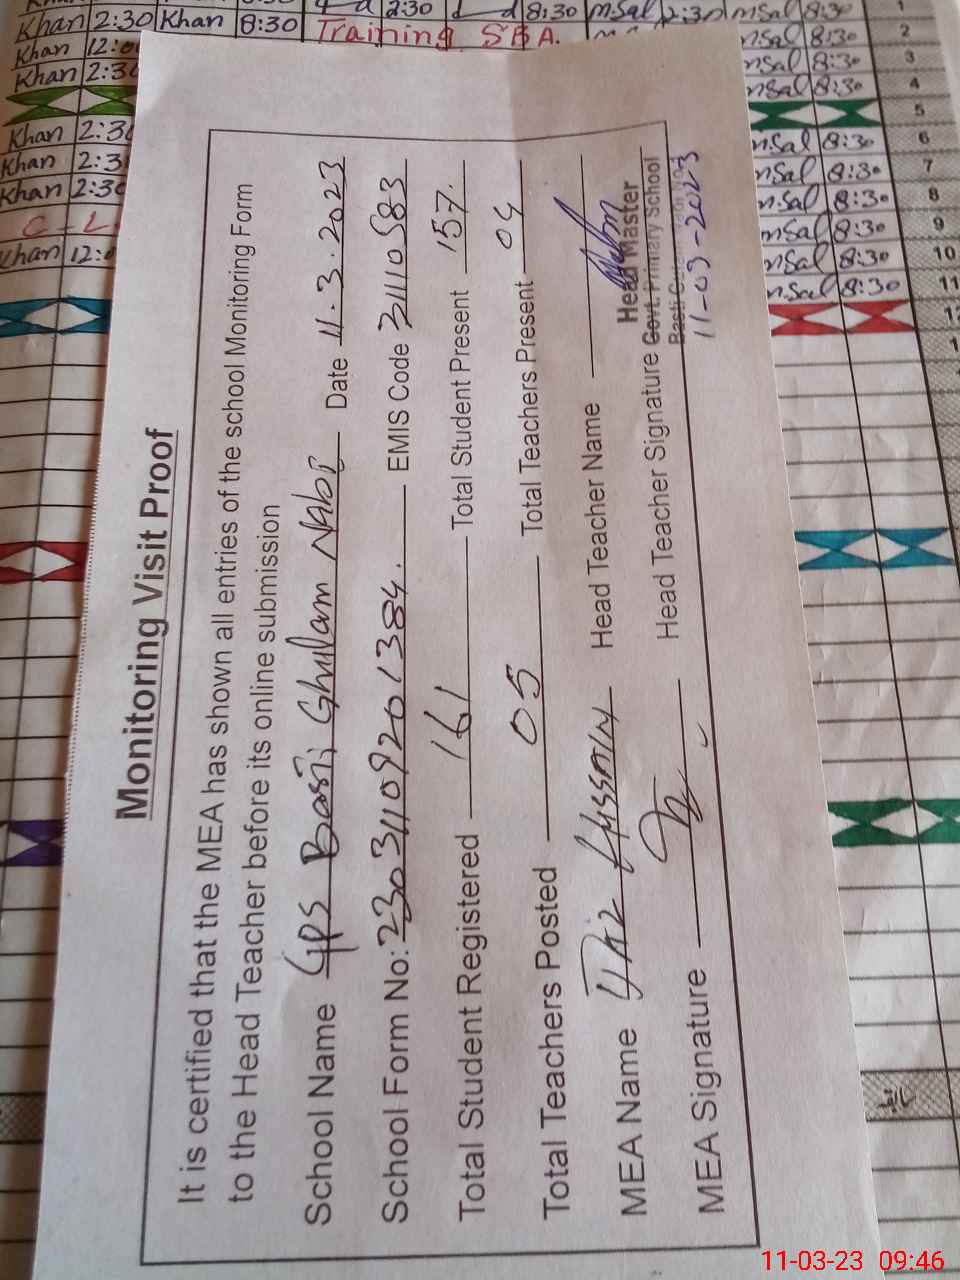 Monitoring Visit Proof
It is certified that the MEA has shown all entries of the school Monitoring Form
to the Head Teacher before its online submission
School Name GPS Basti Ghulam Nabi Date 11.3.2023
School Form No: 23031109201384. EMIS Code 31110583
Total Student Registered 161 Total Student Present 157.
Total Teachers Posted 05 Total Teachers Present 04
MEA Name Hussain Head Teacher Name
MEA Signature Head Teacher Signature
Head Master
Govt. Primary School
Basti
11-03-2023
Khan 2:30 Khan 8:30 Training SBA. 2
Khan 12:00 m.Sal 8:30 3
Khan 2:30 m.Sal 8:30 4
5
Khan 2:30 m.Sal 8:30 6
Khan 2:30 m.Sal 8:30 7
Khan 2:30 m.Sal 8:30 8
C-L m.Sal 8:30 9
Khan 12:0 m.Sal 8:30 10
m.Sal 8:30 11
11-03-23 09:46